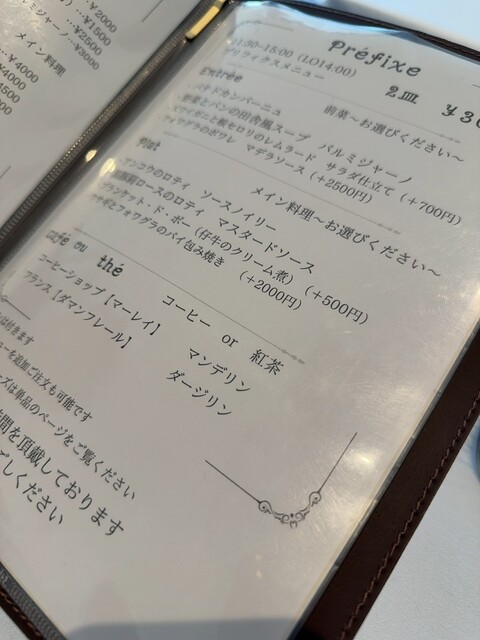 …¥2000
…¥1500
…¥2500
ルミジャーノ…¥3000
メイン料理
…¥4000
préfixe
11:30~15:00 (LO14:00)
プリフィクスメニュー
2皿 ¥3
Entrée
前菜～お選びください～
パテドカンパーニュ
野菜とパンの田舎風スープ パルミジャーノ
ズワイガニと根セロリのレムラード サラダ仕立て (+700円)
フォワグラのポワレ マデラソース (+2500円)
Plat
メイン料理～お選びください～
アンコウのロティ ソースノイリー
肩ロースのロティ マスタードソース
ブランケット・ド・ボー (仔牛のクリーム煮) (+500円)
ウサギとフォワグラのパイ包み焼き (+2000円)
café ou thé
コーヒー or 紅茶
コーヒーショップ【マーレイ】 マンデリン
フランス【ダマンフレール】 ダージリン
は付きます
ューを追加ご注文も可能です
ーズは単品のページをご覧ください
間を頂戴しております
ごしください